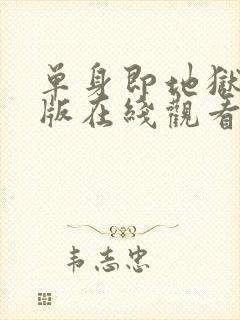 单身即地獄
版在綫觀看
韦志忠